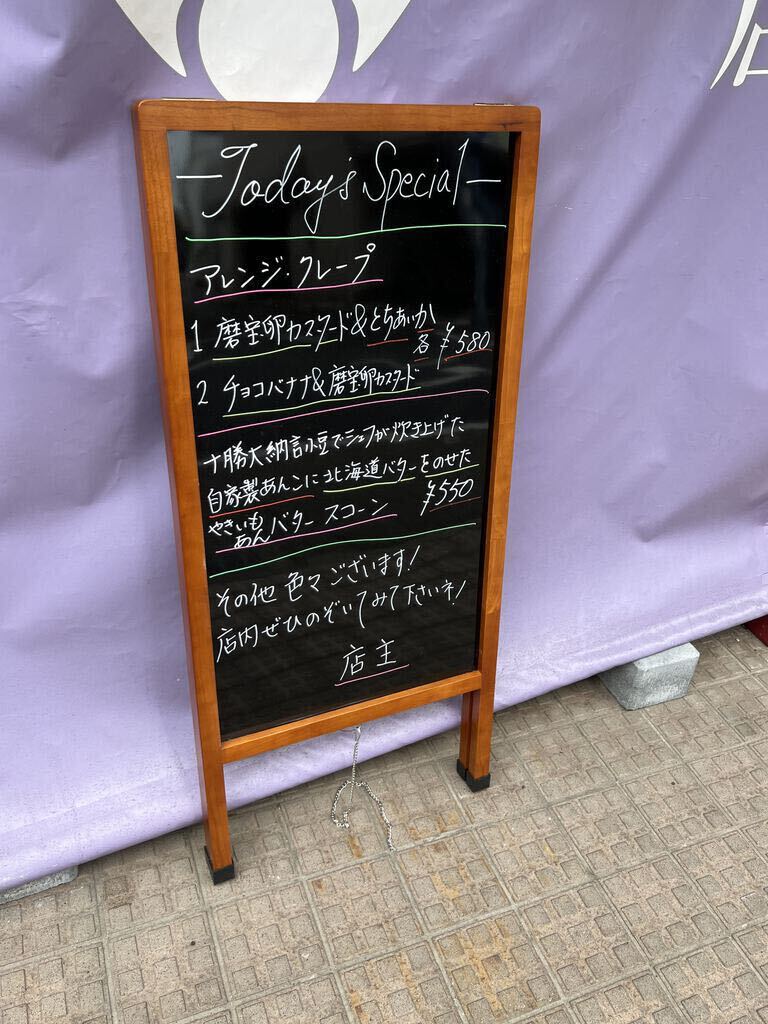 Today's Special
アレンジ・クレープ
1 磨宝卵カスタード&とちあいか
各 ¥580
2 チョコバナナ&磨宝卵カスタード
十勝大納言小豆でシェフが炊き上げた
自家製あんこに北海道バターをのせた
やきいもあんバタースコーン ¥550
その他 色々ございます!
店内ぜひのぞいてみて下さいネ!
店主